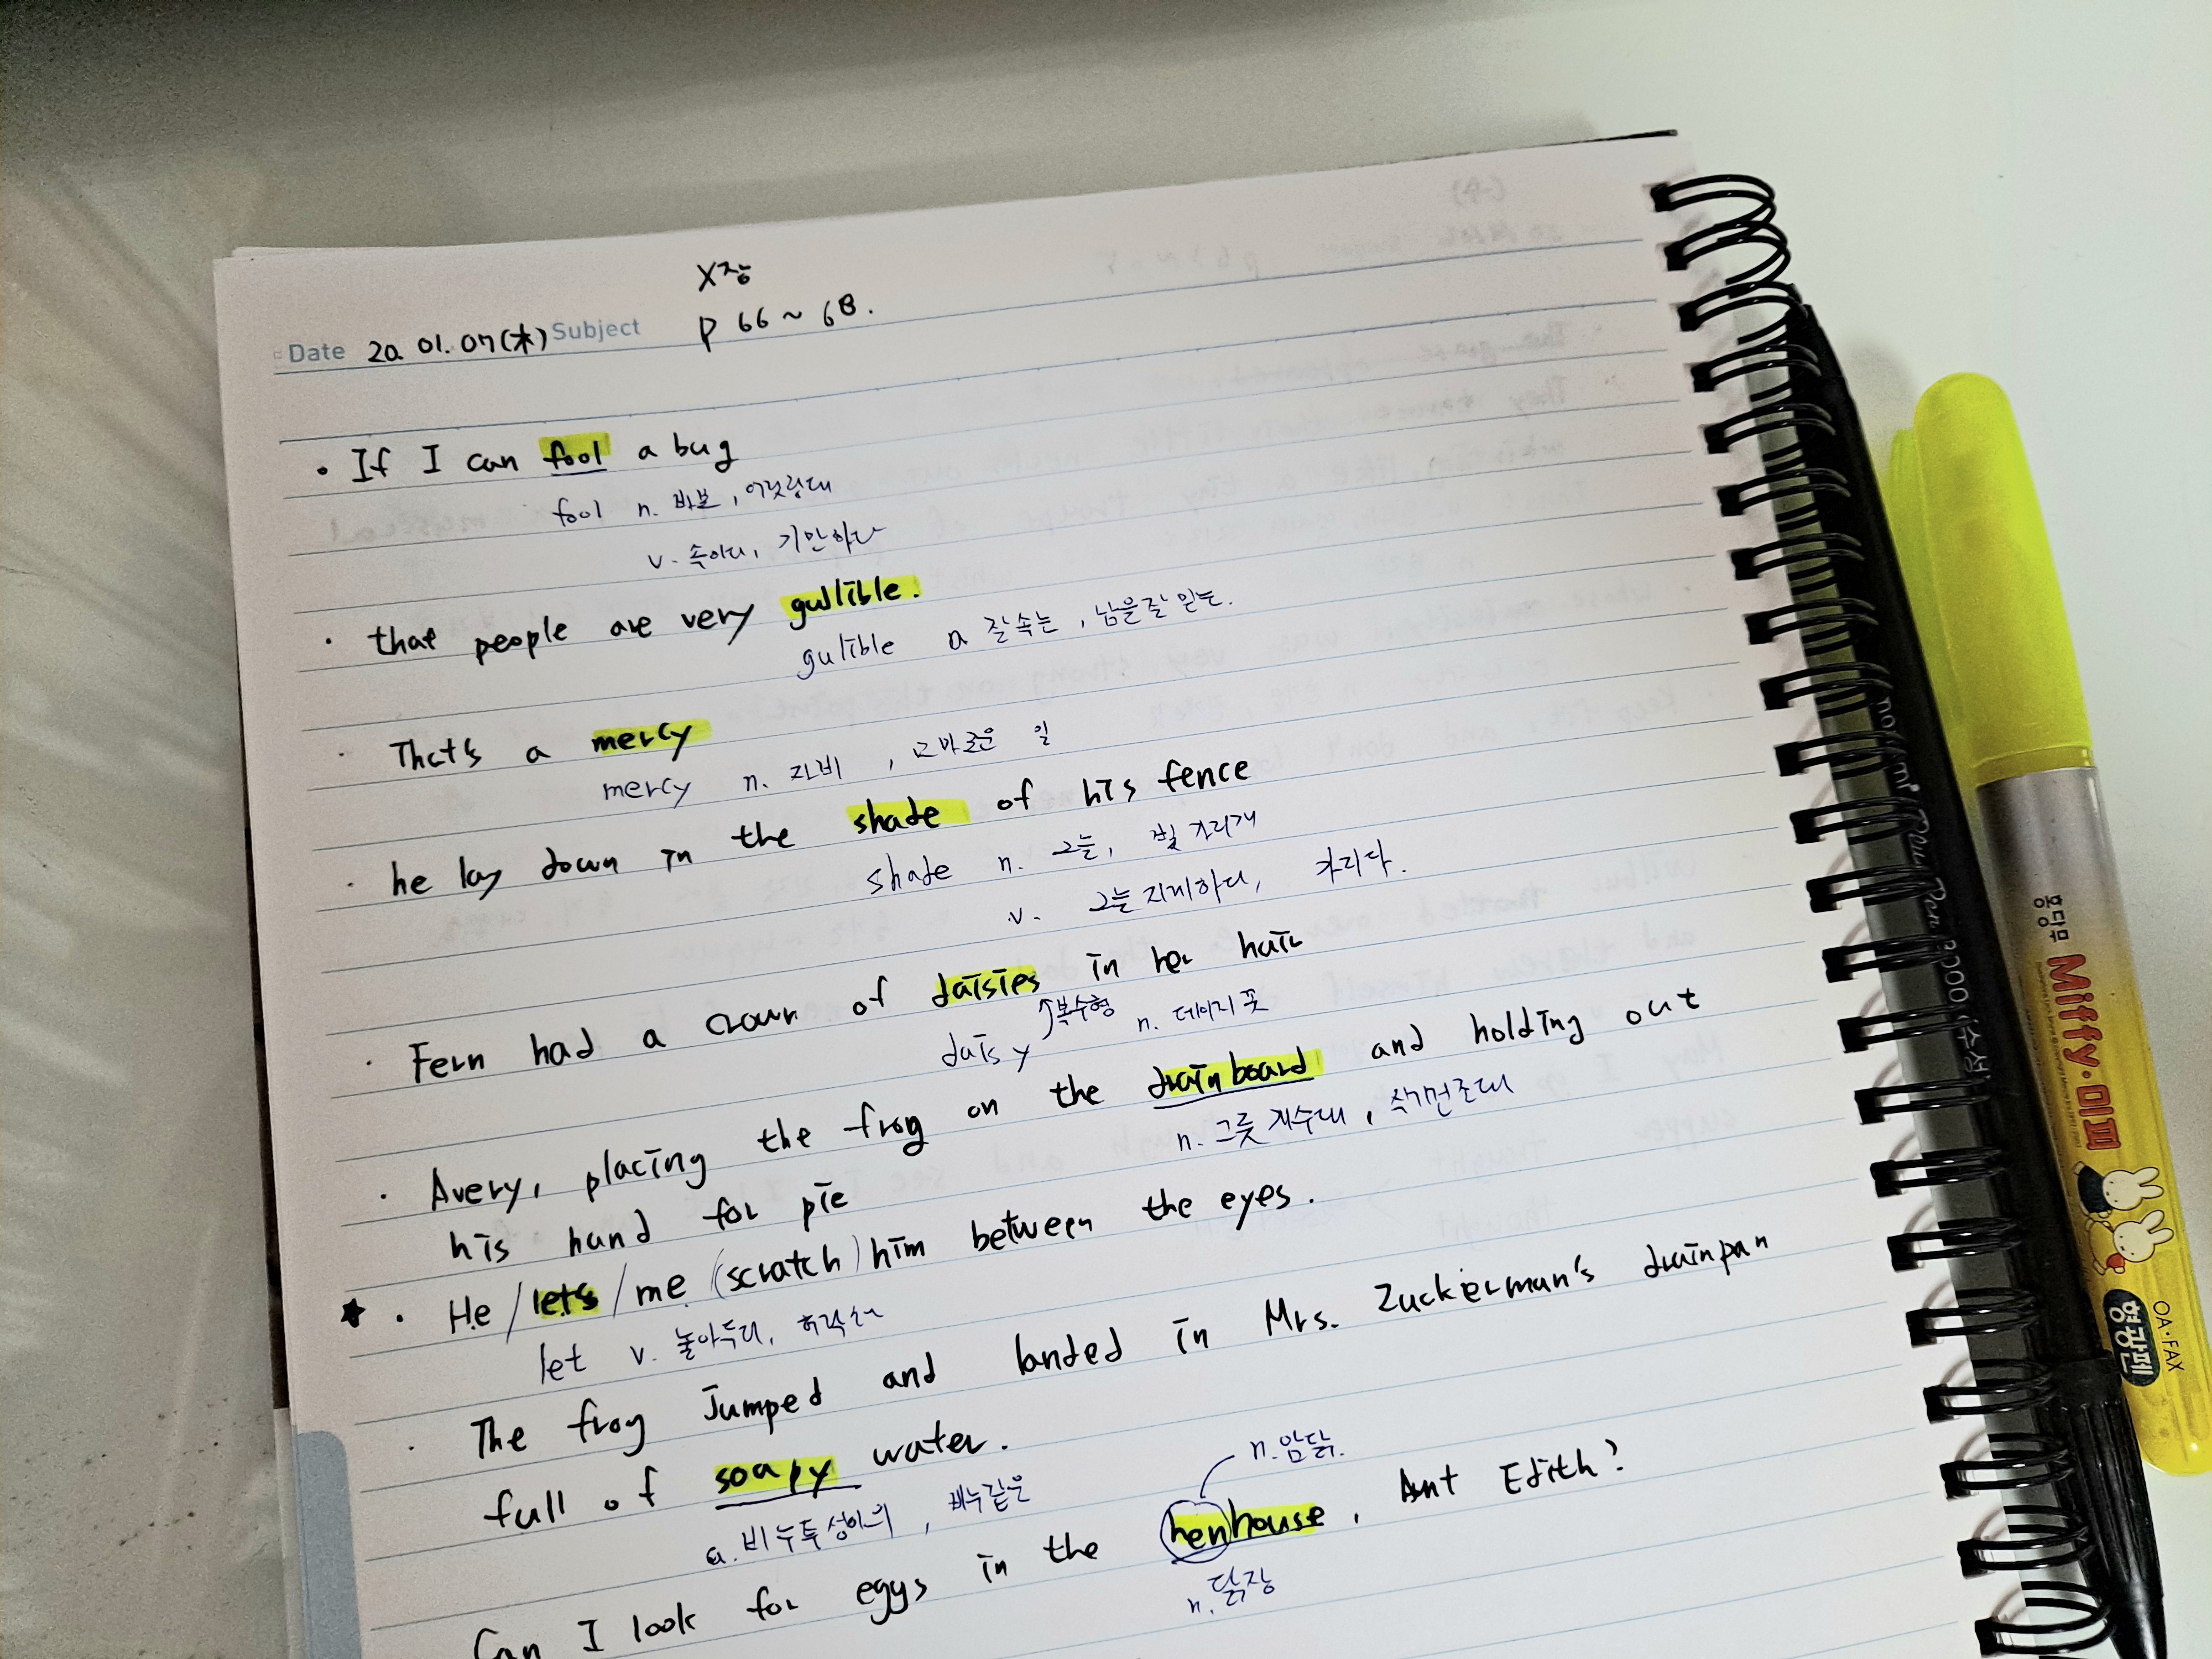 X장
Date 20. 01. 07(木) Subject p 66 ~ 68.
· If I can fool a bug
fool n. 바보, 어릿광대
v. 속이다, 기만하다
· that people are very gullible.
gullible a 잘속는, 남을잘 믿는.
· That's a mercy
mercy n. 자비, 고마운 일
· he lay down in the shade of his fence
shade n. 그늘, 빛 가리개
v. 그늘지게하다, 가리다.
· Fern had a crown of daisies in her hair
daisy ↑복수형 n. 데이지 꽃
· Avery, placing the frog on the drainboard and holding out
n. 그릇 개수대, 식기건조대
his hand for pie
★ · He / lets / me (scratch) him between the eyes.
let v. 놓아두다,
· The frog jumped and landed in Mrs. Zuckerman's drainpan
full of soapy water.
a. 비누투성이의, 비누같은
n. 암탉.
Can I look for eggs in the henhouse, Aunt Edith?
n. 닭장
monami Plus Pen 3000 (수성)
몽당무 Miffy·미피
OA·FAX
형광펜